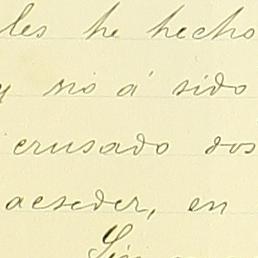 les he hecho
y no á sido
crusado dos
acseder, en
Sin